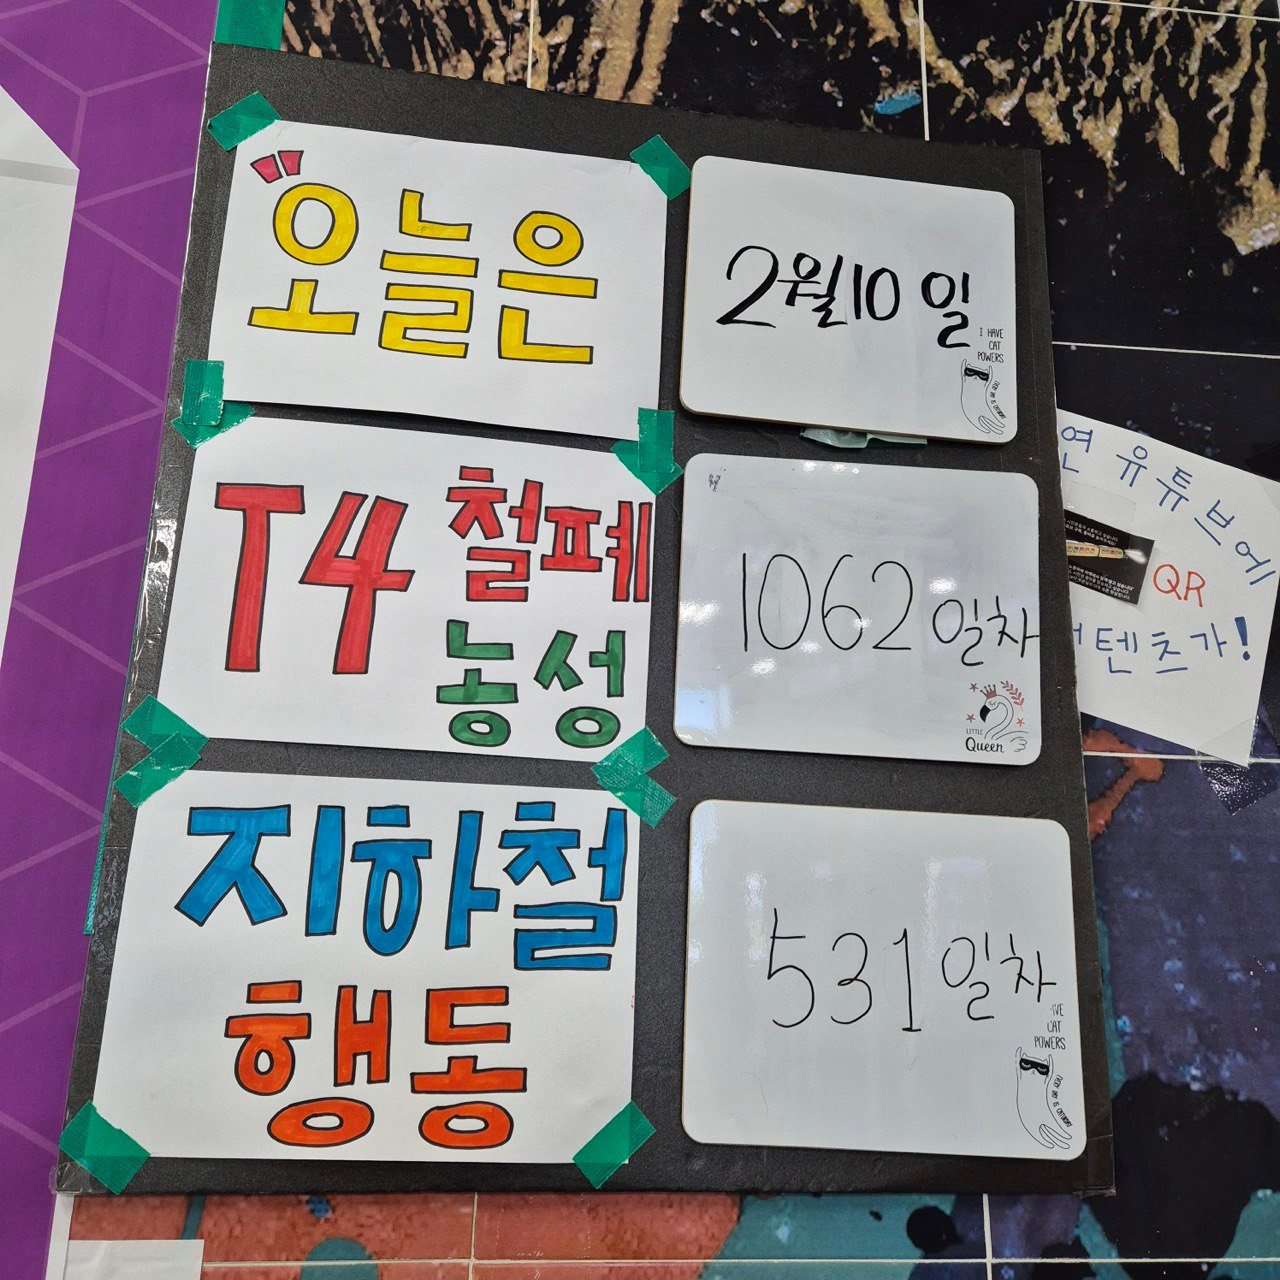 "오늘은
2월10일
I HAVE
CAT
POWERS
T4 철폐
농성
1062일차
LITTLE
Queen
지하철
행동
531일차
CAT
POWERS
유튜브에
QR
텐츠가!